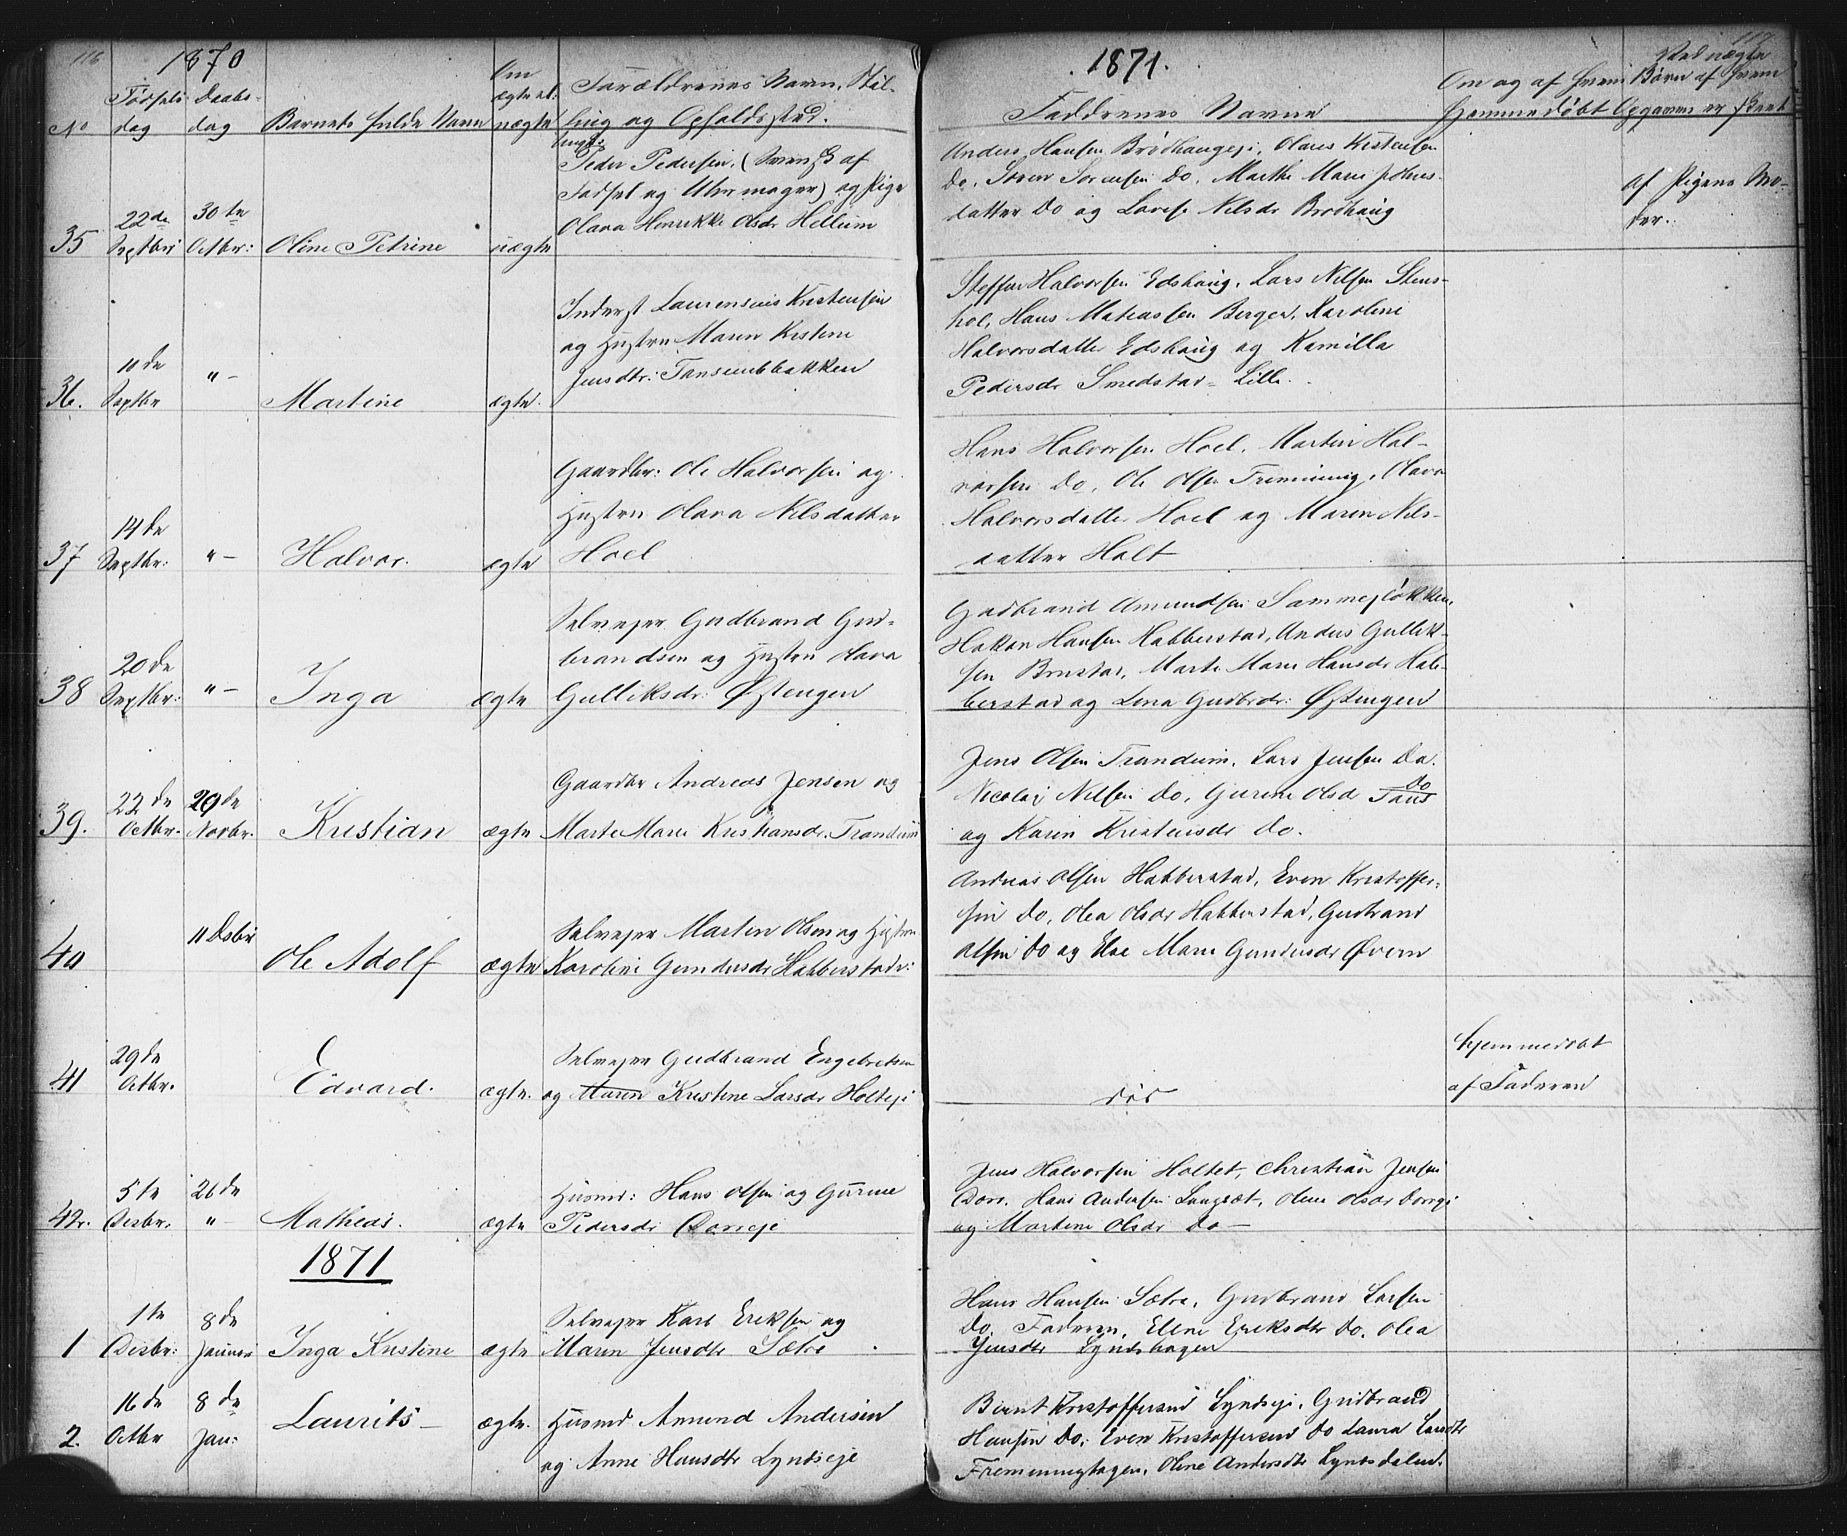 116
1870
No
Fødsels
dag
Daabs-
dag
Barnets fulde Navn
Om
ægte el.
uægte
Forældrenes Navn, Stil-
ling og Opholdssted.
35
22de
Septbr:
30te
Octbr:
Oline Petrine
uægte
Peder Pedersen, (Svensk af
Fødsel og Uhrmager) og Pige
Olava Henrikke Olsdr Hellum
36.
10de
Septbr
"-
Martine
ægte.
Inderst Laurensius Kristensen
og Hustru Maren Kristine
Jensdtr: Transundbakken
37
14de
Septbr:
"-
Halvor.
ægte
Gaardbr: Ole Halvorsen og
Hustru Olava Nilsdatter
Hoel
38
20de
Septbr:
"-
Inga
ægte
Selvejer Gudbrand Gud-
brandsen og Hustru Olava
Gulliksdr: Østengen
39.
22de
Octbr.
20de
Novbr.
Kristian
ægte
Gaardbr Andreas Jensen og
Marte Marie Kristiansdr. Trandum
40
11 Dsbr
Ole Adolf
ægte
Selvejer Martin Olsen og Hustru
Karoline Gundersdr Habberstad:
41
29de
Octbr.
Edvard.
ægte.
Selvejer Gudbrand Engebretsen
og Maren Kristine Larsdr Holteje
42.
5te
Desbr.
26de
"-
Matheas.
ægte
Husmd: Hans Olsen og Gurine
Pedersdr Dorreje
1871
1
1te
Desbr:
8de
Januar
Inga Kristine
ægte
Selvejer Karl Eriksen og
Maren Jensdtr Sætre
2.
16de
Octbr
8de
Jan:
Laurits-
ægte.
Husmd Amund Andersen
og Anne Hansdtr Lyndseje
1871.
Faddrenes Navne
Om og af hvem
hjemmedøbt
Ved uægte
Børn af hvem
Opgaven er skeet
Anders Hansen Brødhaugeje, Olaus Kristensen
Do, Søren Sørensen Do, Marthe Marie Johns-
datter Do og Lovise Nilsdr Brødhaug
af Pigens Mo-
der.
Steffen Halvorsen Edshaug, Lars Nilsen Stens-
hol, Hans Matiassen Berger, Karoline
Halvorsdatter Edshaug og Kamilla
Pedersdr Smedstad-Lille.
Hans Halvorsen Hoel, Martin Hal-
vorsen Do, Ole Olsen Fremming, Olava
Halvorsdatter Hoel og Maren Nils-
datter Holt
Gudbrand Amundsen Sammesløkken,
Hakon Hansen Habberstad, Anders Gullik-
sen Brustad, Marte Marie Hansdr Hab-
berstad og Lina Gudbrdr: Østengen
Jens Olsen Trandum, Lars Jensen Do.
Nicolaj Nilsen Do, Gurine Olsd Do
og Karen Kristensdr Do.
Andreas Olsen Habberstad, Even Kristoffer-
sen Do, Olea Olsdr Habberstad, Gudbrand
Olsen Do og Else Marie Gundersdr Øvern
død
hjemmedøbt
af Faderen
Jens Halvorsen Holtet, Christian Jensen
Dorr, Hans Andersen Langsæt, Olene Olsdr Dorreje
og Martine Olsdr Do-
Hans Hansen Sætre, Gudbrand Larsen
Do. Faderen, Ellene Eriksdtr Do, Olea
Jensdtr Lyndshagen
Bernt Kristoffersen Lyndseje, Gudbrand
Hansen Do, Even Kristoffersen Do Laura Larsdtr
Fremminghagen, Oline Andersdtr Lyndsdalen.